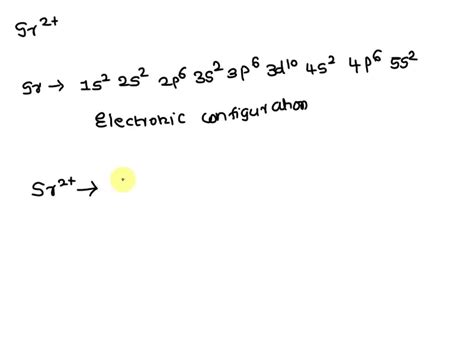 Sr²⁺
Sr → 1s² 2s² 2p⁶ 3s² 3p⁶ 3d¹⁰ 4s² 4p⁶ 5s²
Electronic configuration
Sr²⁺ →